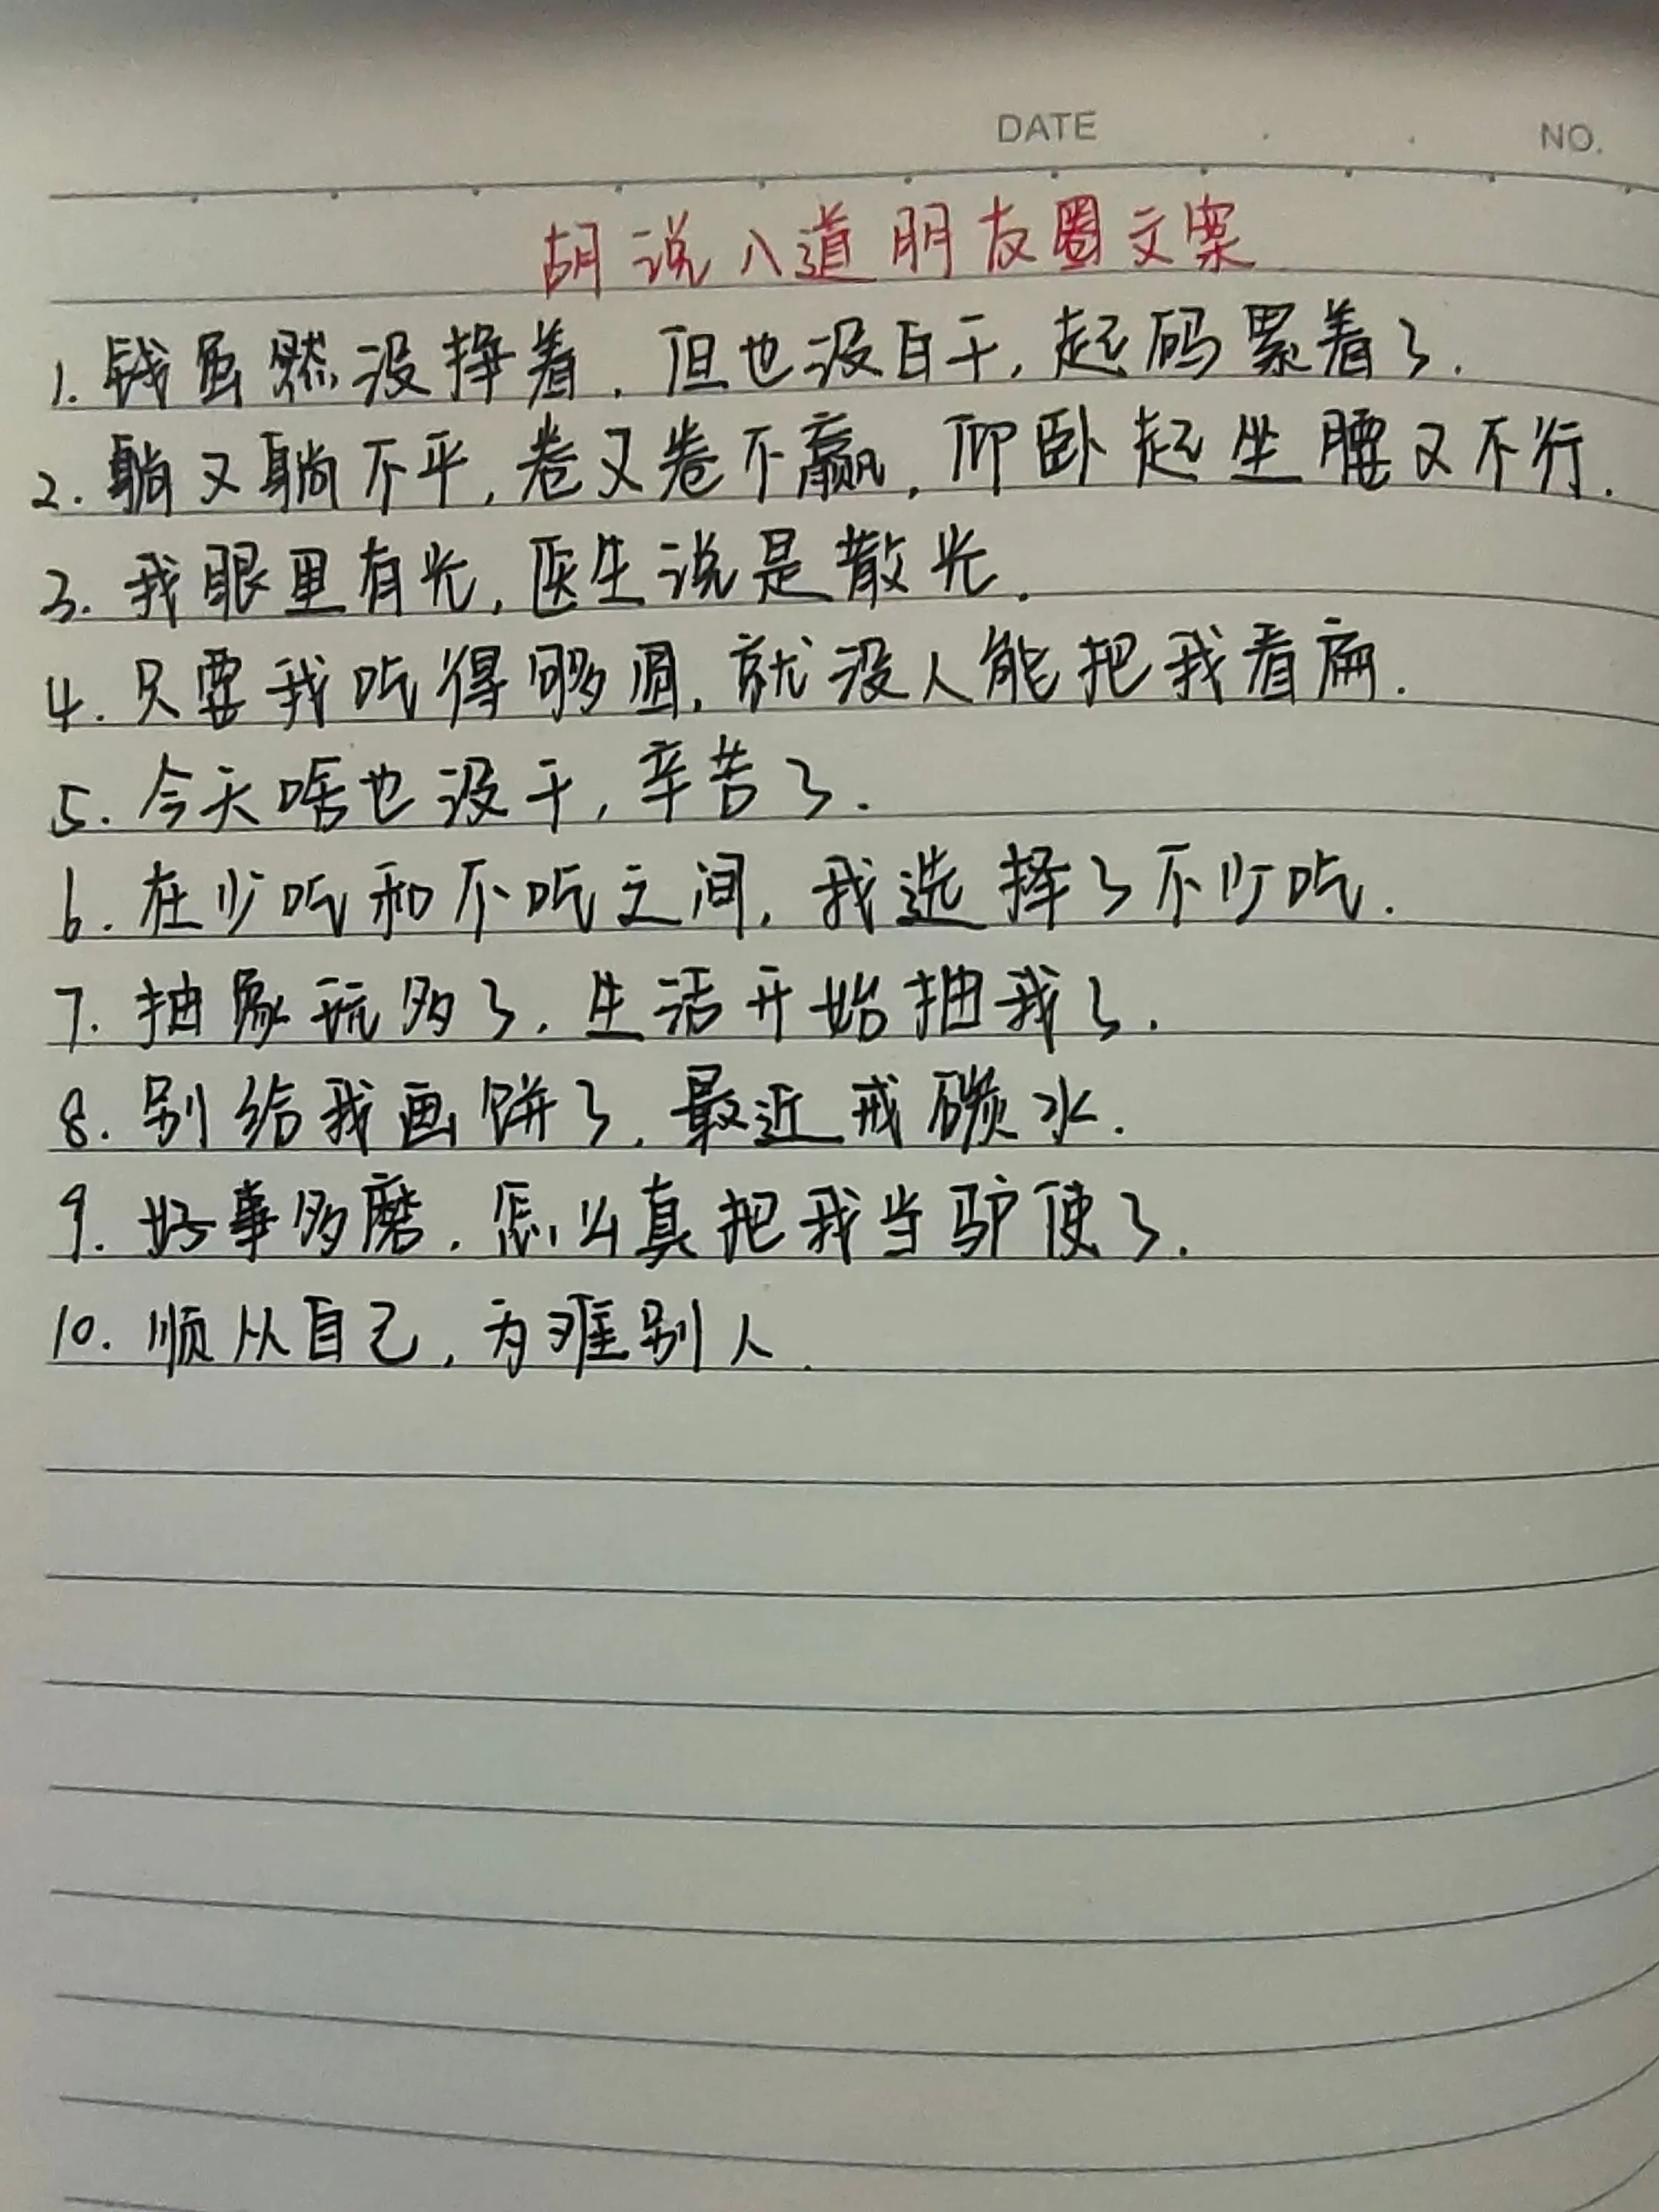 DATE NO.
胡说八道朋友圈文案
1. 钱虽然没挣着，但也没白干，起码累着了.
2. 躺又躺不平，卷又卷不赢，仰卧起坐腰又不行.
3. 我眼里有光，医生说是散光.
4. 只要我吃得够圆，就没人能把我看扁.
5. 今天啥也没干，辛苦了.
6. 在少吃和不吃之间，我选择了不少吃.
7. 抽象玩多了，生活开始抽我了.
8. 别给我画饼了，最近戒碳水.
9. 好事多磨，怎么真把我当驴使了.
10. 顺从自己，为难别人.